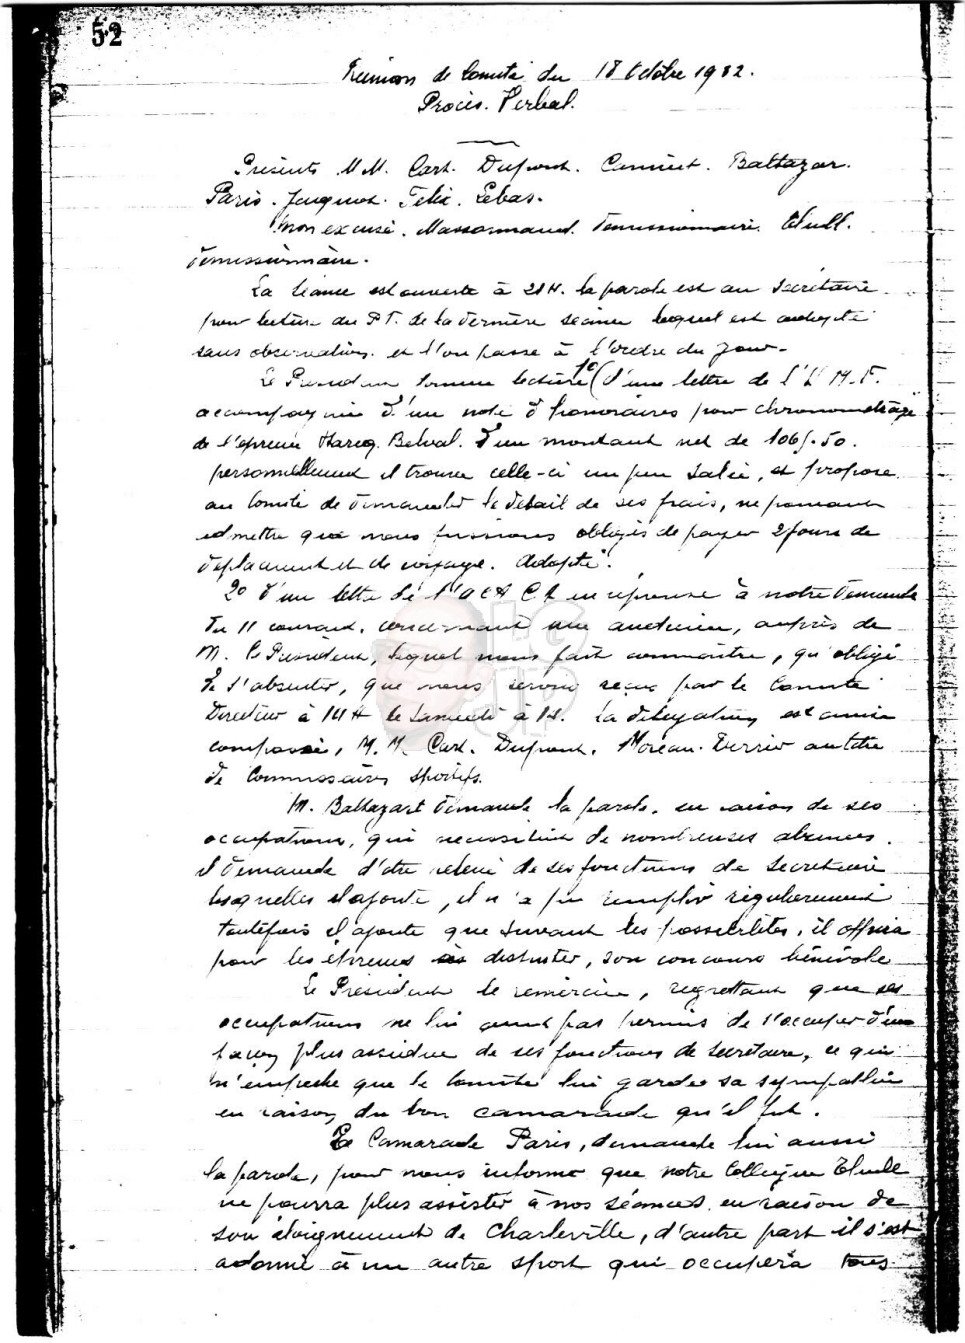 52
Réunion de Comité du 18 Octobre 1932.
Procès. Verbal.
Présents M.M. Cart. Dupont. Canniet. Baltazar.
Paris. Jacquot. Félix. Lebas.
Non excusé. Massonnaud. démissionnaire. Thull.
démissionnaire.
La séance est ouverte à 21H. la parole est au Secrétaire
pour lecture du P.V. de la dernière séance lequel est adopté
sans observation. et l'on passe à l'ordre du jour.
Le Président donne lecture 1° (d'une lettre de l'U.M.F.
accompagnée d'une note d'honoraires pour chronométrage
de l'épreuve Harcy. Belval. d'un montant net de 106f.50.
personnellement il trouve celle-ci un peu salée, et propose
au Comité de demander le détail de ses frais, ne pouvant
admettre que nous fussions obligés de payer 2 jours de
déplacement et de voyage. Adopté.
2° d'une lettre de l'ACA en réponse à notre demande
du 11 courant, concernant une audience, auprès de
M. le Président, lequel nous fait connaître, qu'obligé
de s'absenter, que nous serons reçus par le Comité
Directeur à 14H le Samedi à 14. La délégation est ainsi
composée, M.M. Cart. Dupont. Moreau. au titre
de Commissaires sportifs.
M. Baltazart demande la parole. en raison de ses
occupations, qui nécessitent de nombreuses absences.
il demande d'être relevé de ses fonctions de Secrétaire
lesquelles il ajoute, il n'a pu remplir régulièrement
toutefois il ajoute que suivant les possibilités, il offrira
pour les épreuves à disputer, son concours bénévole
Le Président le remercie, regrettant que ses
occupations ne lui aient pas permis de s'occuper d'une
façon plus assidue de ses fonctions de Secrétaire, ce qui
n'empêche que le Comité lui garde sa sympathie
en raison du bon camarade qu'il fut.
Le Camarade Paris, demande lui aussi
la parole, pour nous informer que notre Collègue Thull
ne pourra plus assister à nos séances en raison de
son éloignement de Charleville, d'autre part il s'est
adonné à un autre sport qui occupera tous